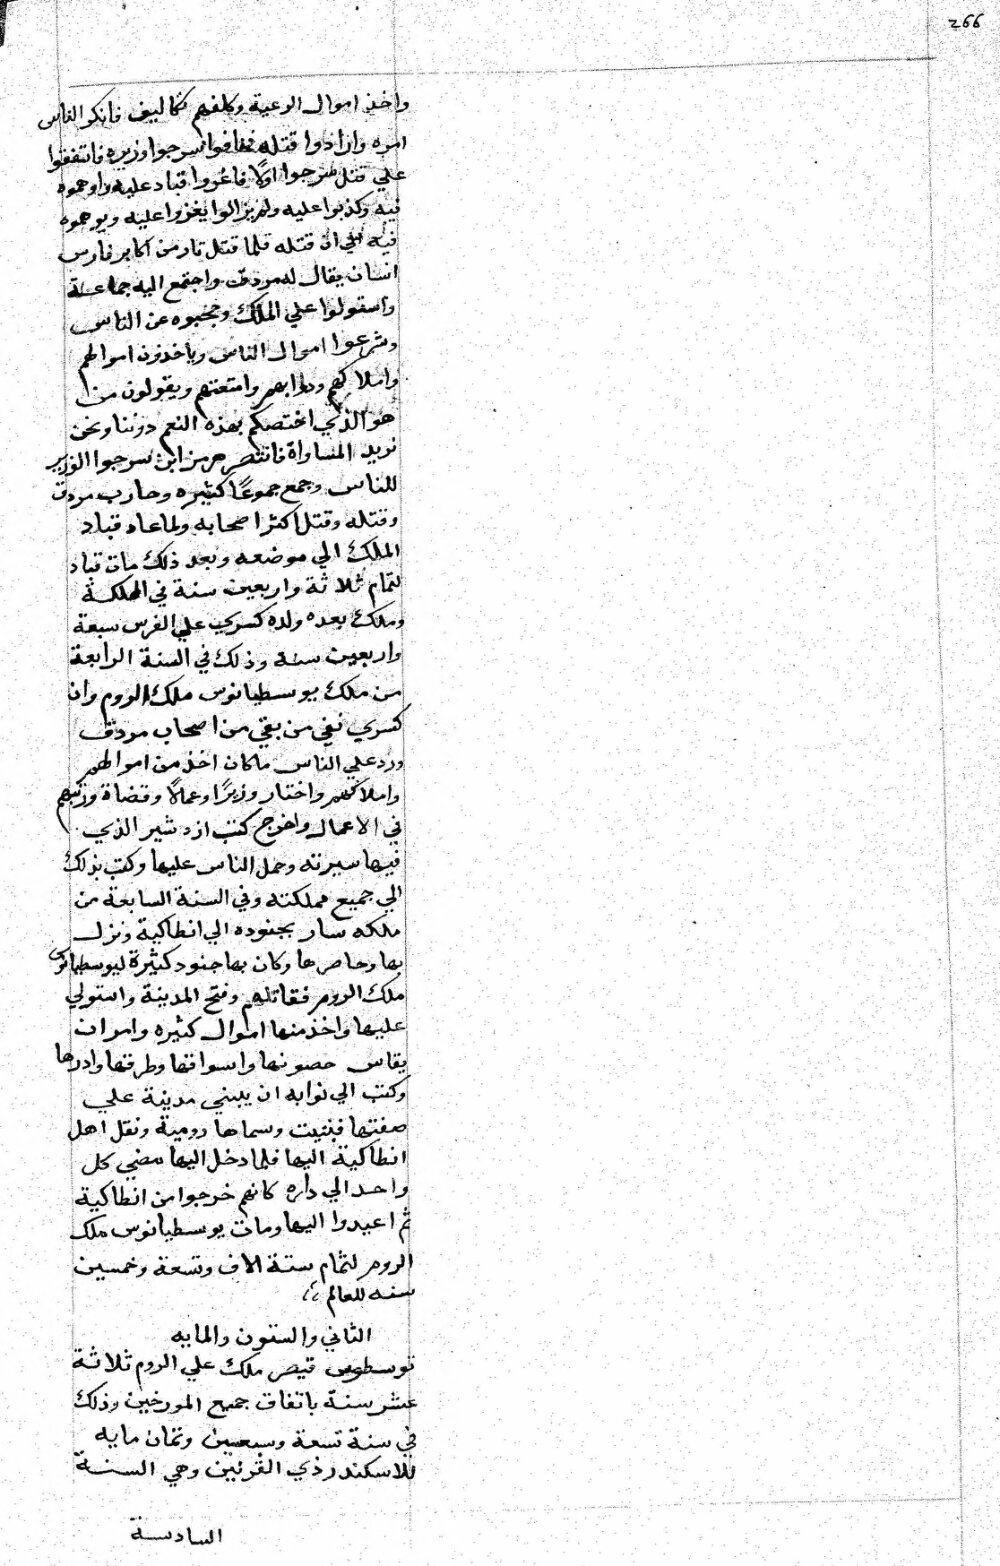 266
واخذ اموال الرعية وكلفهم تكاليف فانكر الناس
امره وارادوا قتله فخافوا سرجوا وزيره فاتفقوا
علي قتل سرجوا اولاً فاغروا قباد عليه واوحموه
فيه وكذبوا عليه ولم يزالوا يغزوا عليه ويوحموه
فيه الي ان قتله فلما قتل ثار من اكابر فارس
انسان يقال له مردق واجتمع اليه جماعة
واستولوا علي الملك وحجبوه عن الناس
وشرعوا اموال الناس وياخذون اموالهم
واملاكهم ودوابهم وامتعتهم ويقولون من
هو الذي اختصكم بهذه النعم دوننا ونحن
نريد المساواة فانتصر هرمز ابن سرجوا الوزير
للناس وجمع جموعًا كثيره وحارب مردق
وقتله وقتل اكثر اصحابه ولما عاد قباد
الملك الي موضعه وبعد ذلك مات قباد
لتمام ثلاثة واربعين سنة في المملكة
وملك بعده ولده كسري علي الفرس سبعة
واربعين سنة وذلك في السنة الرابعة
من ملك يوسطيانوس ملك الروم وان
كسري نفي من بقي من اصحاب مردق
ورد علي الناس ماكان اخذ من اموالهم
واملاكهم واختار وزيرًا وعمالاً وقضاة ورتبهم
في الاعمال واخرج كتب ازدشير الذي
فيها سيرته وحمل الناس عليها وكتب بذلك
الي جميع مملكته وفي السنة السابعة من
ملكه سار بجنوده الي انطاكية ونزل
بها وحاصرها وكان بها جنود كثيرة ليوسطيانوس
ملك الروم فقاتلهم وفتح المدينة واستولي
عليها واخذ منها اموال كثيره وامر ان
يقاس حصونها واسواقها وطرقها وادرها
وكتب الي نوابه ان يبني مدينة علي
صفتها فبنيت وسماها رومية ونقل اهل
انطاكية اليها فلما دخل اليها مضي كل
واحد الي داره كانهم خرجوا من انطاكية
ثم اعيدوا اليها ومات يوسطيانوس ملك
الروم لتمام ستة الاف وتسعة وخمسين
سنه للعالم
الثاني والستون والمايه
توسطوس قيصر ملك علي الروم ثلاثة
عشر سنة باتفاق جميع المورخين وذلك
في سنة تسعة وسبعين وثمان مايه
للاسكندر ذي القرنين وهي السنة
السادسة